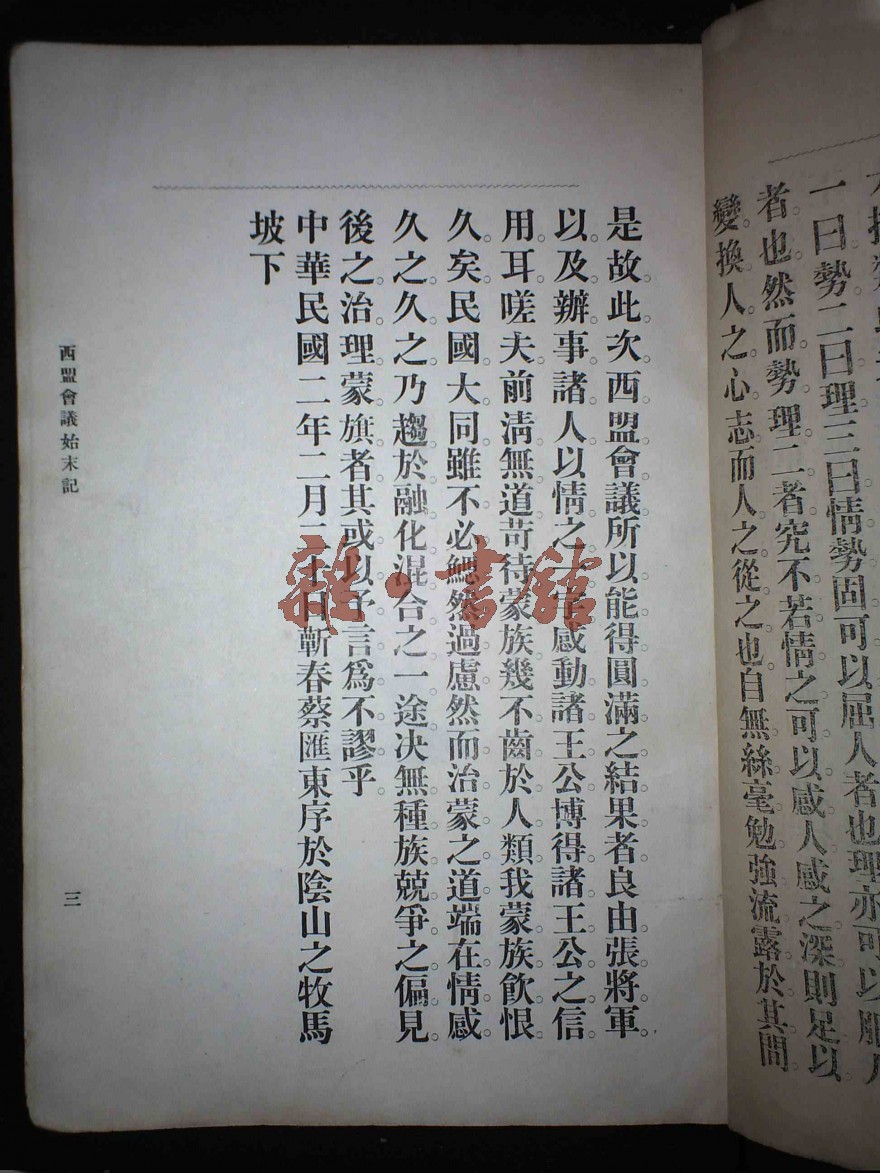 一曰勢二曰理三曰情勢固可以屈人者也理亦可以服人
者也然而勢理二者究不若情之可以感人感之深則足以
變換人之心志而人之從之也自無絲毫勉強流露於其間
是故此次西盟會議所以能得圓滿之結果者良由張將軍
以及辦事諸人以情之一字感動諸王公博得諸王公之信
用耳嗟夫前清無道苛待蒙族幾不齒於人類我蒙族飲恨
久矣民國大同雖不必鰓然過慮然而治蒙之道端在情感
久之久之乃趨於融化混合之一途决無種族兢爭之偏見
後之治理蒙旗者其或以予言爲不謬乎
中華民國二年二月二十日蘄春蔡匯東序於陰山之牧馬
坡下
西盟會議始末記
三
雜·書館